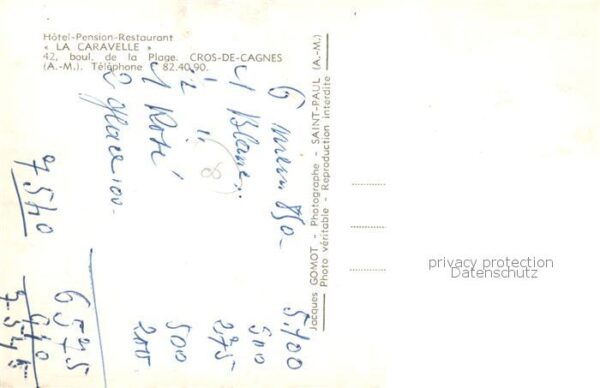 Hôtel-Pension-Restaurant
« LA CARAVELLE »
42, boul. de la Plage. CROS-DE-CAGNES
(A.-M.). Téléphone : 82.40.90.
Jacques GOMOT - Photographe - SAINT-PAUL (A.-M.)
Photo véritable - Reproduction interdite
6 menu 850- 5.100
1 Blanc 500
1/2 " 275
1 Rosé 500
2 glace 100- 200
6575
940
7.540
8
privacy protection
Datenschutz